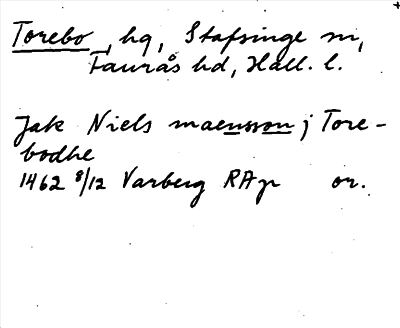 Torebo, hg, Stafsinge sn,
Faurås hd, Hall. l.
Jak Niels maensson j Tore-
bodhe
1462 8/12 Varberg RAp or.